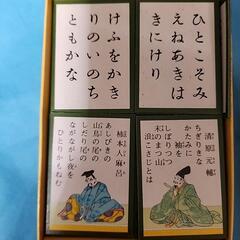 ひとこそみ
えねあきは
きにけり
けふをかき
りのいのち
ともかな
清原元輔
ちぎりきな
かたみに
袖を
しぼりつつ
末のまつ山
浪こさじとは
柿本人麻呂
あしびきの
山鳥の尾の
しだり尾の
ながながし夜を
ひとりかもねむ